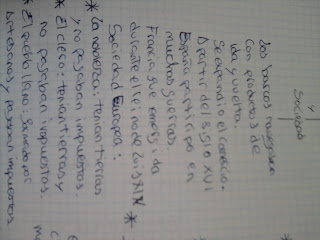 y
Sociedad
Los barcos navegaban
con productos de
ida y vuelta.
Se expandio el comercio.
A partir del siglo XVI
España participo en
muchas guerras
Francia que
durante el reinado Luis XIV
Sociedad Europa:
* La nobleza: tenian tierras
y no pagaban impuestos.
* El clero: tenian tierras y
no pagaban impuestos.
* El estado llano: formado por
artesanos y pagaban impuestos